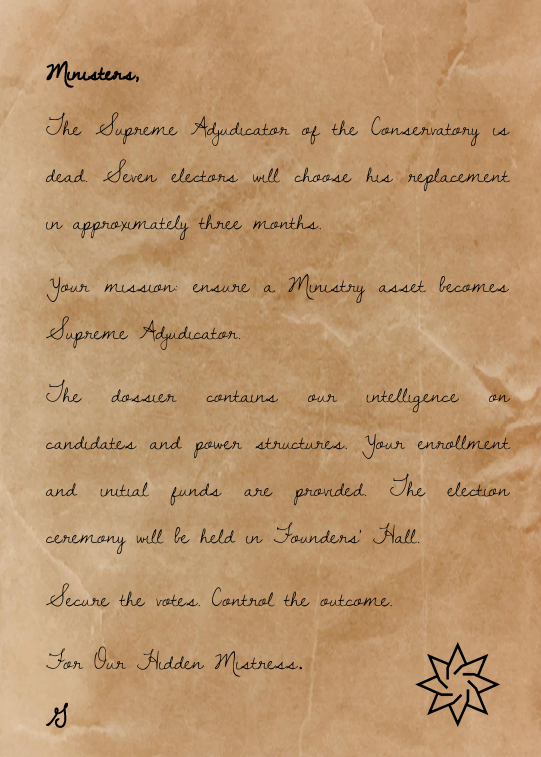 Ministers,
The Supreme Adjudicator of the Conservatory is
dead. Seven electors will choose his replacement
in approximately three months.
Your mission: ensure a Ministry asset becomes
Supreme Adjudicator.
The dossier contains our intelligence on
candidates and power structures. Your enrollment
and initial funds are provided. The election
ceremony will be held in Founders' Hall.
Secure the votes. Control the outcome.
For Our Hidden Mistress.
G